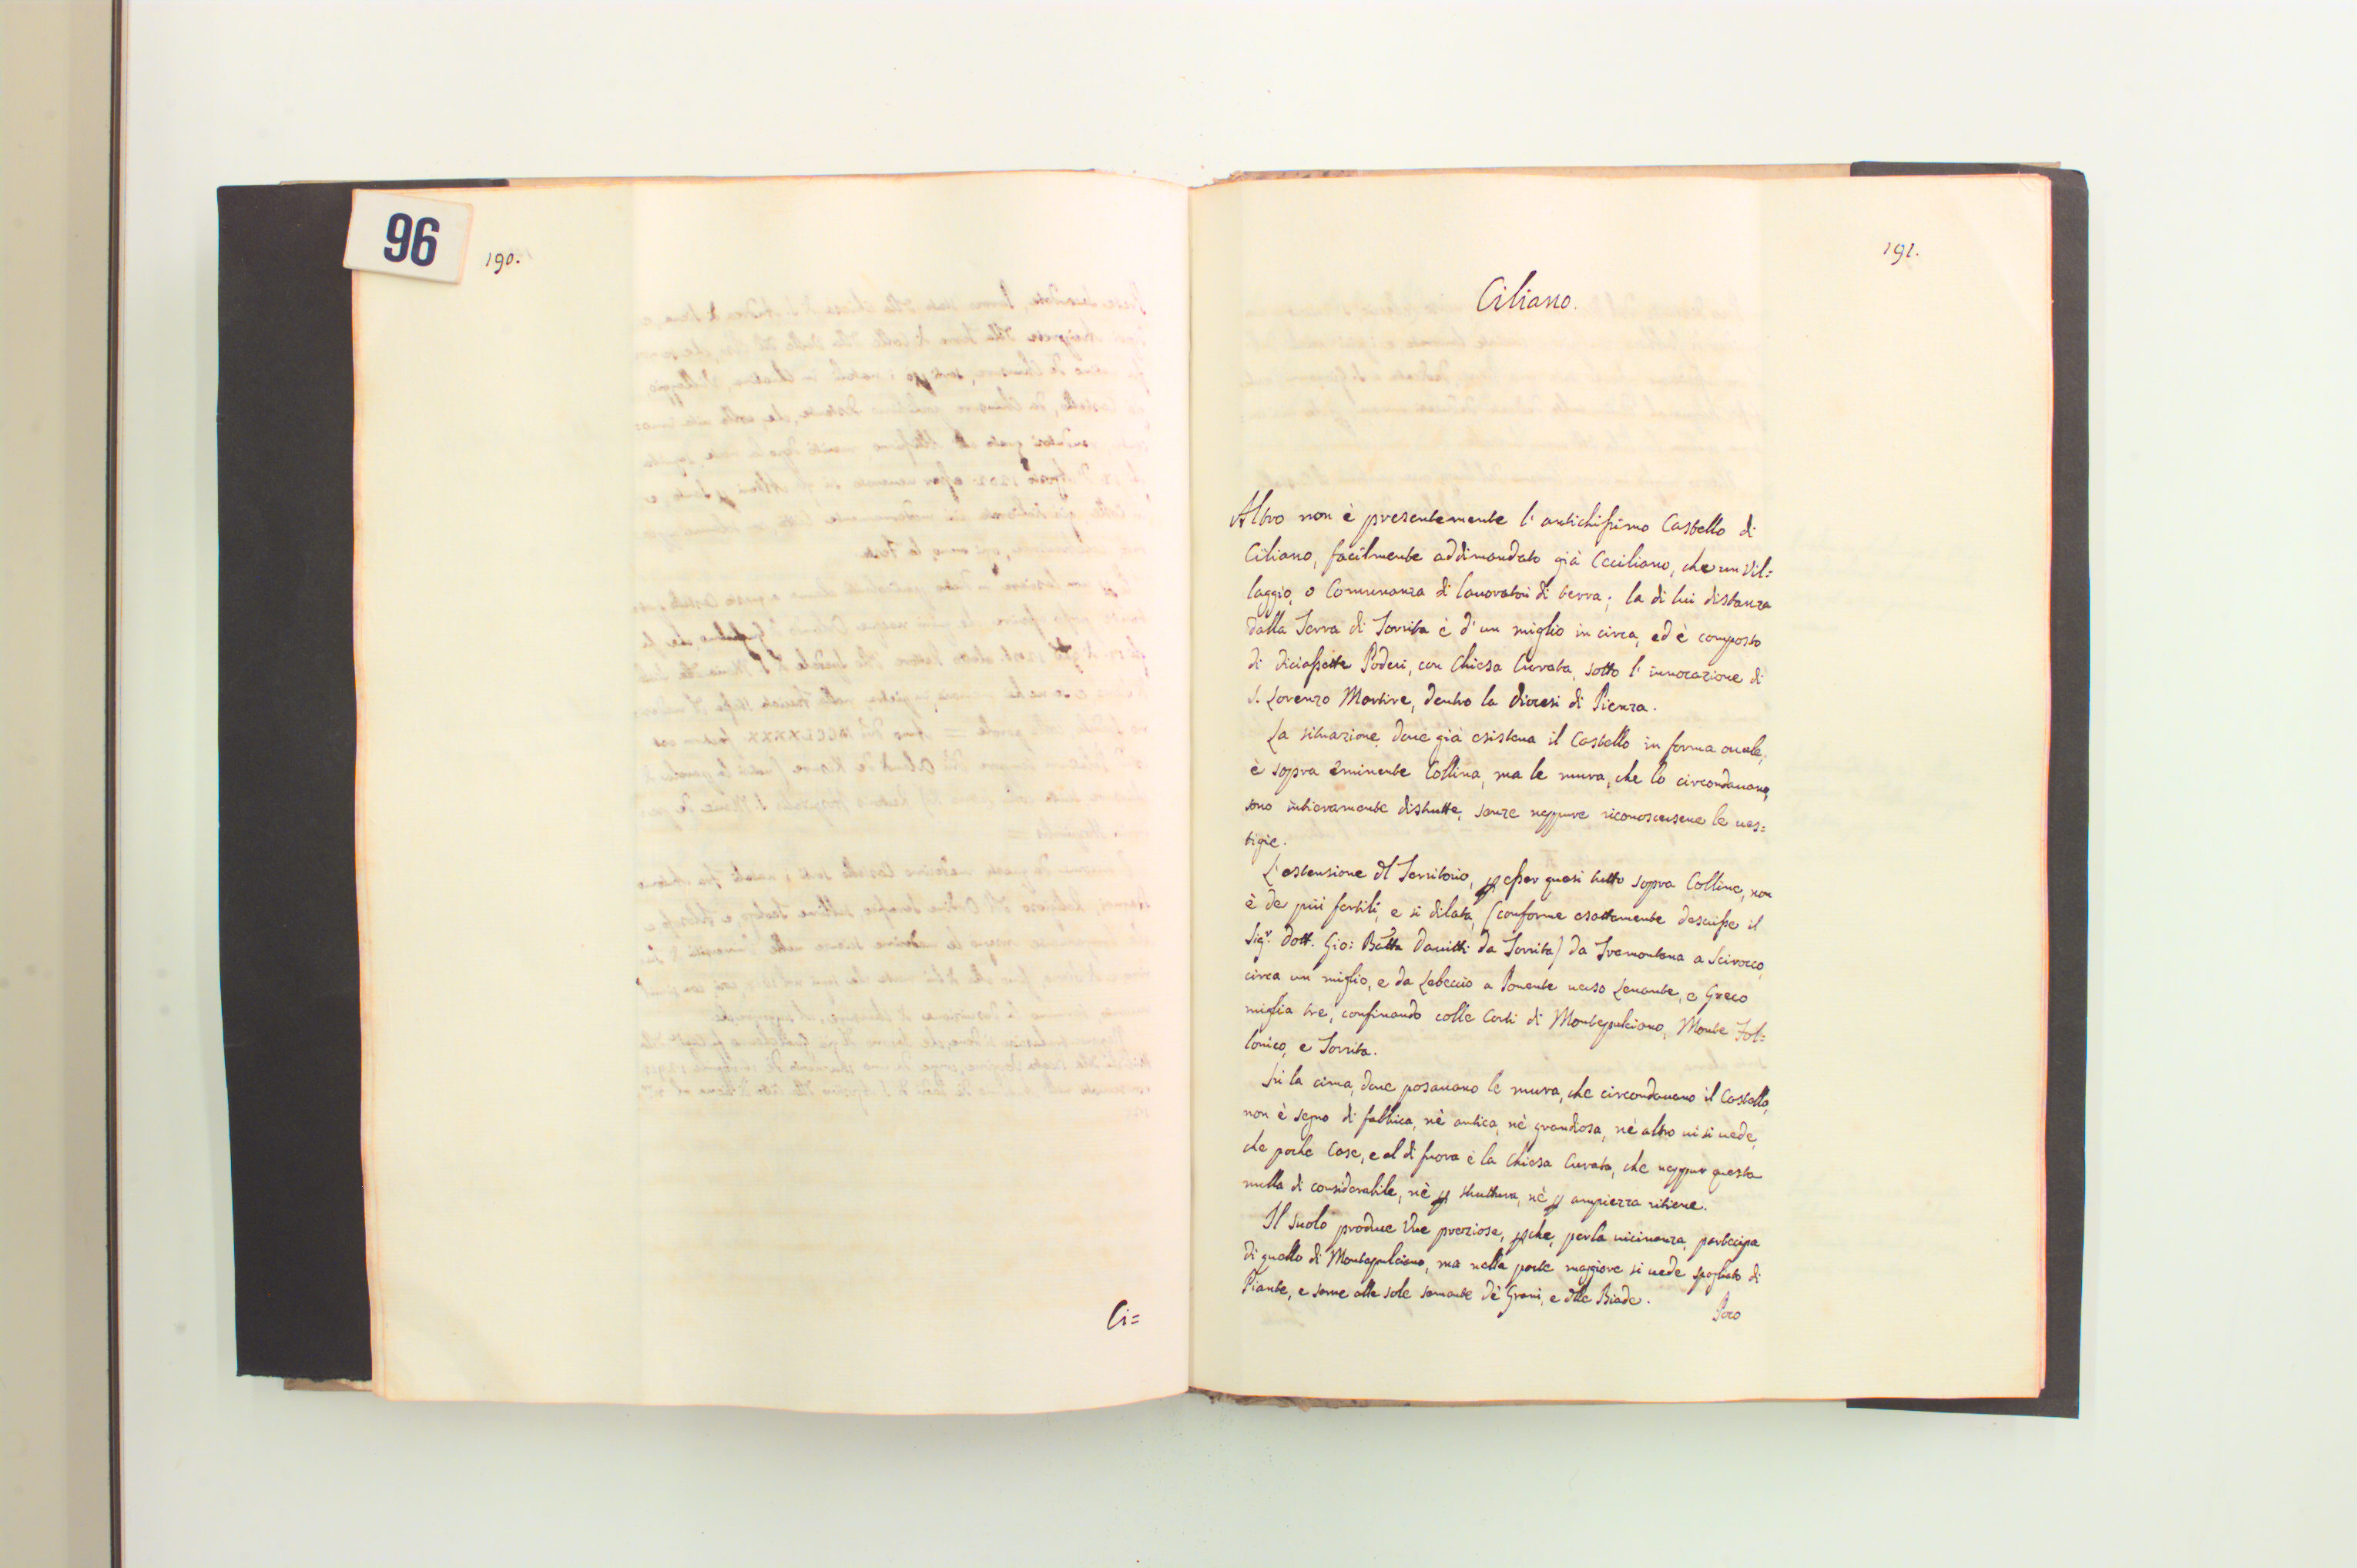 96
190.
Ci=
191.
Ciliano.
Altro non è presentemente l'antichissimo Castello di
Ciliano, facilmente addimandato già Ceciliano, che un Vil=
laggio, o Comunanza di lauoratori di terra; la di lui distanza
dalla Terra di Torrita è d'un miglio in circa, ed è composto
di diciassette Poderi, con Chiesa Curata, sotto l'inuocazione di
S. Lorenzo Martire, dentro la Diocesi di Pienza.
La situazione, doue già esisteua il Castello in forma ouale,
è sopra eminente Collina, ma le mura, che lo circondauano,
sono intieramente distrutte, senza neppure riconoscersene le ues=
tigie.
L'estensione dl Territorio, p esser quasi tutto sopra Colline, non
è de più fertili, e si dilata, (conforme esattamente descrisse il
Sigr. Dott. Gio: Batta Dauitti da Torrita) da Tramontana a Scirocco,
circa un miglio, e da Lebeccio a Ponente uerso Leuante, e Greco
miglia tre, confinando colle Corti di Montepulciano, Monte Fol=
lonico, e Torrita.
Sù la cima, doue posauano le mura, che circondauano il Castello,
non è segno di fabbrica, nè antica, nè grandiosa, nè altro ui si uede,
che poche Case, e al di fuora è la Chiesa Curata, che neppur questa
nulla di considerabile, nè p struttura, nè p ampiezza ritiene.
Il suolo produce Vue preziose, pche, per la uicinanza, partecipa
di quello di Montepulciano, ma nella parte maggiore si uede spogliato di
Piante, e serue alle sole semente de' Grani, e dlle Biade.
Poco